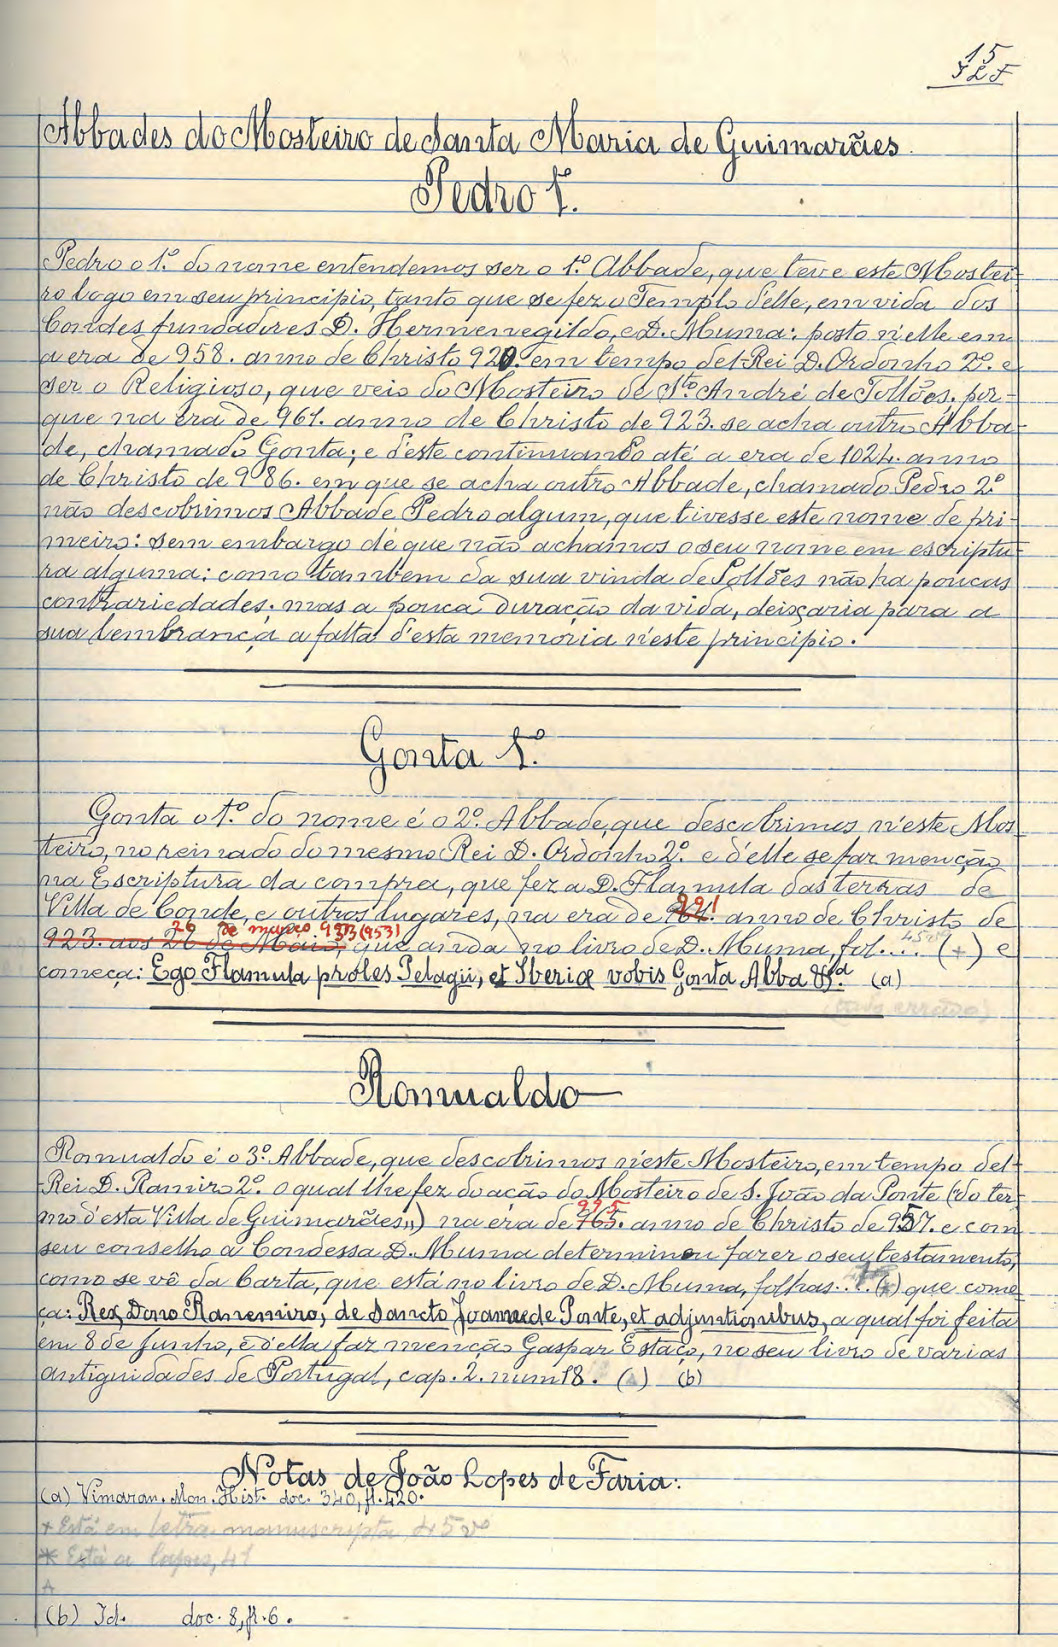 15
JLF
Abbades do Mosteiro de Santa Maria de Guimarães.
Pedro 1º.
Pedro o 1º. do nome entendemos ser o 1º. Abbade, que teve este Mostei-
ro logo em seu principio, tanto que se fez o Templo d'elle, em vida dos
Condes fundadores D. Hermenegildo, e D. Muma: posto n'elle em
a era de 958. anno de Christo 920. em tempo del-Rei D. Ordonho 2º. e
ser o Religioso, que veio do Mosteiro de Sto. André de Tollões. por-
que na era de 961. anno de Christo de 923. se acha outro Abba-
de, chamado Gonta; e d'este continuando até a era de 1024. anno
de Christo de 986. em que se acha outro Abbade, chamado Pedro 2º
não descobrimos Abbade Pedro algum, que tivesse este nome de pri-
meiro: sem embargo de que não achamos o seu nome em escriptu-
ra alguma; como tambem da sua vinda de Tollões não ha poucas
contrariedades; mas a pouca duração da vida, deixaria para a
sua lembrança a falta d'esta memoria n'este principio.
Gonta 1º.
Gonta o 1º. do nome é o 2º. Abbade, que descobrimos n'este Mos
teiro, no reinado do mesmo Rei D. Ordonho 2º. e d'elle se faz menção
na Escriptura da compra, que fez a D. Flamula das terras de
Villa de Conde, e outros lugares, na era de 961. 991 anno de Christo de
923. aos 26 de Maio, 26 de março 953 (953) que anda no livro de D. Muma, fol.... 45vº (+) e
começa: Ego Flamula proles Pelagii, et Iberiæ vobis Gonta Abba &ª. (a)
Romualdo
Romualdo é o 3º. Abbade, que descobrimos n'este Mosteiro, em tempo del-
Rei D. Ramiro 2º. o qual lhe fez doação do Mosteiro de S. João da Ponte (do ter-
mo d'esta Villa de Guimarães,,) na era de 965. 995 anno de Christo de 957. e com
seu conselho a Condessa D. Muma determinou fazer o seu testamento,
como se vê da Carta, que está no livro de D. Muma, folhas... (*) que come
ça: Rex, Dono Ranemiro, de Sancto Joanne de Ponte, et adjuntionibus, a qual foi feita
em 8 de Junho, e d'ella faz menção Gaspar Estaço, no seu livro de varias
antiguidades de Portugal, cap. 2. num 18. (A) (b)
Notas de João Lopes de Faria:
(a) Vimaran. Mon. Hist. doc. 340, fl. 420.
+ Está em letra manuscripta, 45vº
* Está a lapis, 41
A
(b) Id. doc. 8, fl. 6.